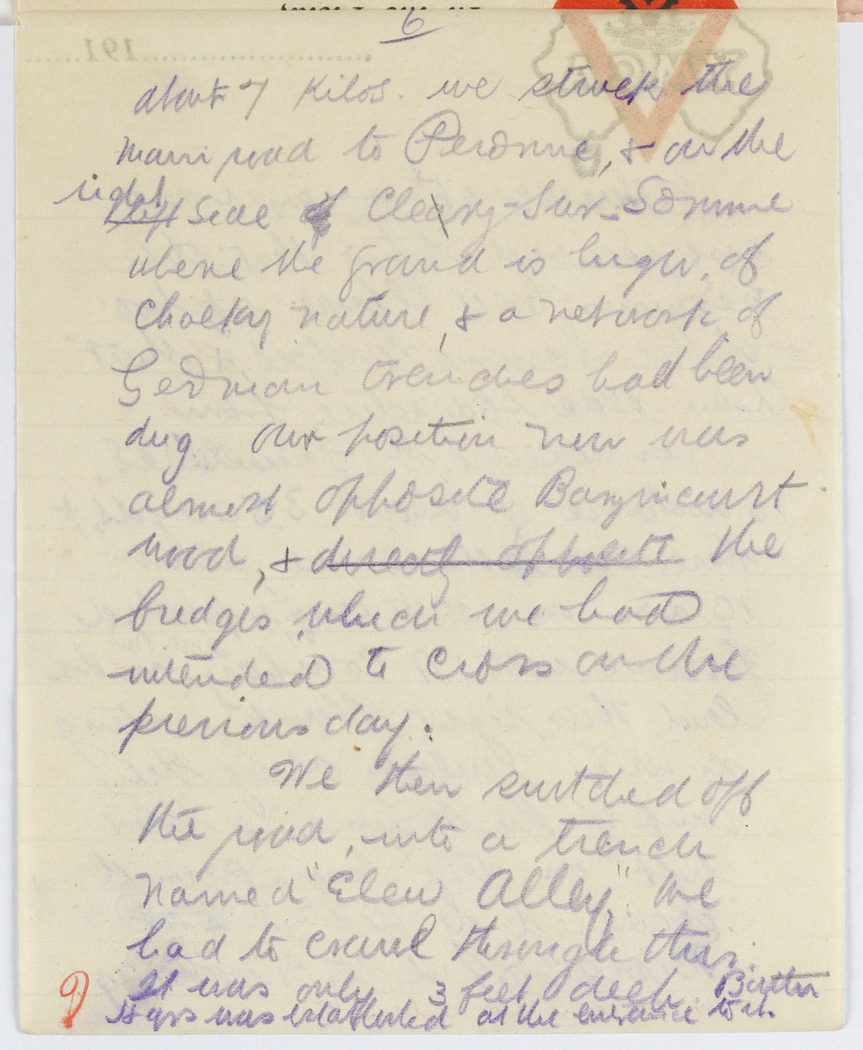 6
about 7 Kilos. we struck the
main road to Peronne, & on the
right
left side of Cleary-Sur-Somme
where the ground is high, of
chalky nature, & a network of
German trenches had been
dug our position now was
almost opposite Bazincourt
wood, & directly opposite the
bridges which we had
intended to cross on the
previous day.
We then switched off
the road, into a trench
named "Elew Alley," we
had to crawl through this.
It was only 3 feet deep Battn
Hqrs was established at the entrance to it.
191